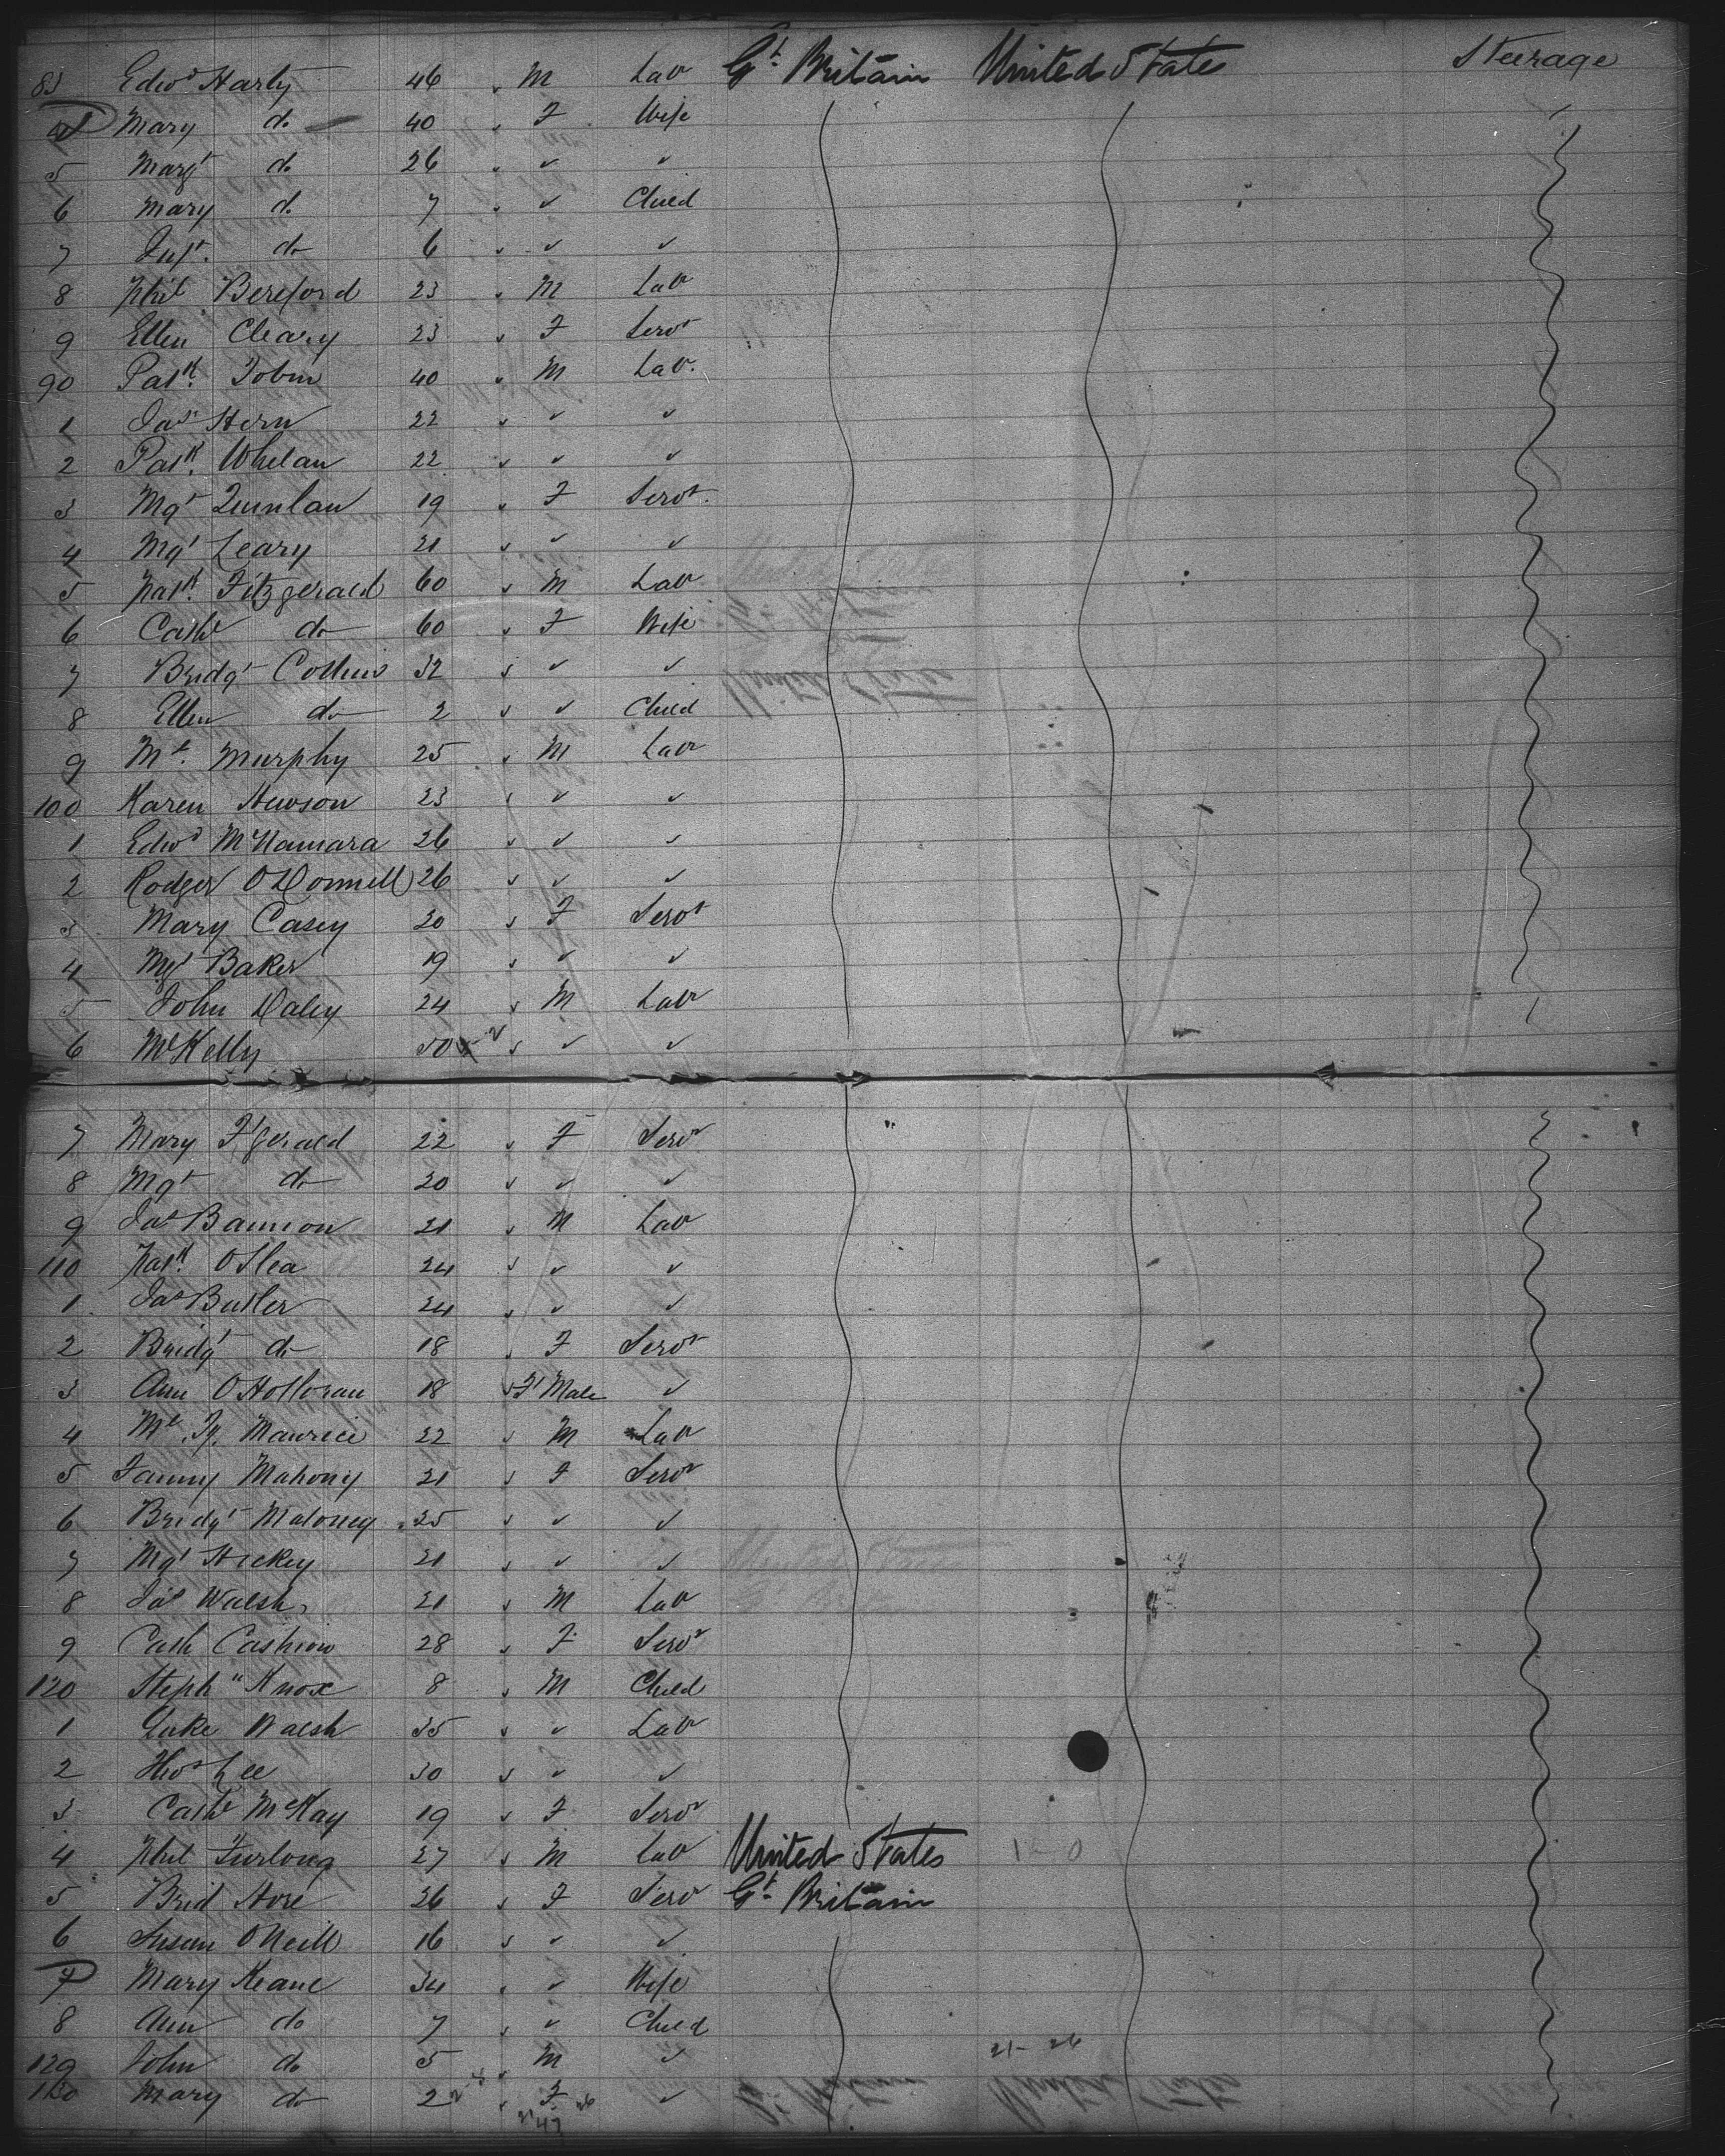 83 Edwd Harty 46 " M Labr Gt. Britain United States Steerage
Mary do 40 " F Wife
5 Margt do 26 " " "
6 Mary do 7 " " Child
7 do 6 " " "
8 Phil Bereford 23 " M Labr
9 Ellen Cleary 23 " F Servt
90 Patk. Tobin 40 " M Labr.
1 Jas Hern 22 " " "
2 Patk. Whelan 22 " " "
3 Mgt Quinlan 19 " F Servt.
4 Mgt Leary 21 " " "
5 Patk. Fitzgerald 60 " M Labr
6 Cathe do 60 " F Wife
7 Bridgt Collins 32 " " "
8 Ellen do 2 " " Child
9 Ml. Murphy 25 " M Labr
100 Karen Hewson 23 " " "
1 Edwd McNamara 26 " " "
2 Rodger O'Donnell 26 " " "
3 Mary Casey 20 " F Servt
4 Mgt Baker 19 " " "
5 John Daley 24 " M Labr
6 Ml Kelly 50 " " "
7 Mary F'gerald 22 " F Servt
8 Mgt do 20 " " "
9 Jas Bannon 21 " M Labr
110 Patk. O'Shea 24 " " "
1 Jas Butler 24 " " "
2 Bridgt do 18 " F Servt
3 Ann O'Holloran 18 " F'Male "
4 Ml. Fz. Maurice 22 " M Labr
5 Fanny Mahony 21 " F Servt
6 Bridgt Maloney 25 " " "
7 Mgt Hickey 21 " " "
8 Jas Walsh 21 " M Labr
9 Cath Cashion 28 " F Servt
120 Steph" Knox 8 " M Child
1 Luke Walsh 35 " " Labr
2 Thos Lee 30 " " "
3 Cathe McKay 19 " F Servt
4 Phil Furlong 27 " M Labr United States
5 Brid Hore 26 " F Servt Gt. Britain
6 Susan O'Neill 16 " " "
7 Mary Keane 34 " " Wife
8 Ann do 7 " " Child
129 John do 5 " M " 21 - 26
130 Mary do 2 " F "
21 26
47